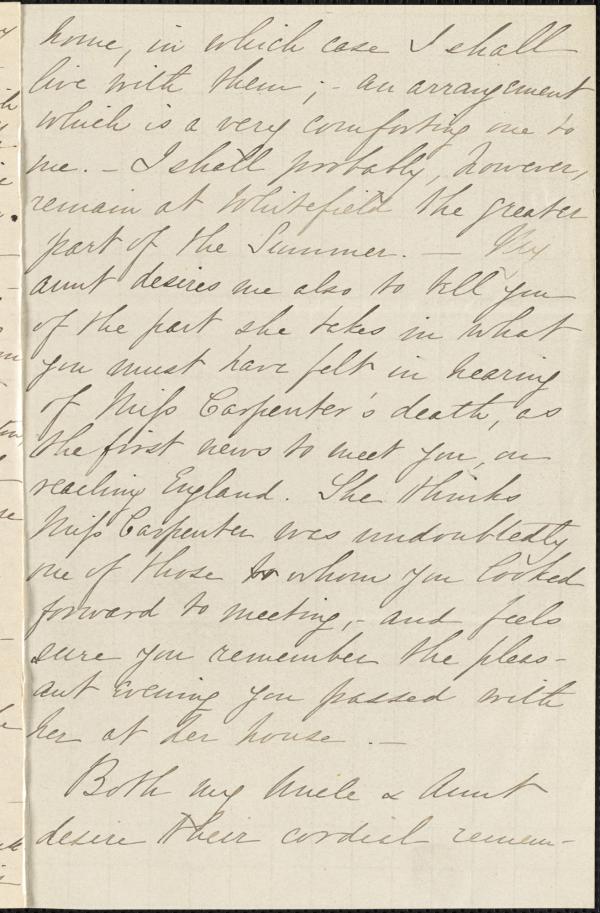 home, in which case I shall
live with them; - an arrangement
which is a very comforting one to
me. - I shall probably, however,
remain at Whitefield the greater
part of the Summer. - My
aunt desires me also to tell you
of the part she takes in what
you must have felt in hearing
of Miss Carpenter's death, as
the first news to meet you, on
reaching England. She thinks
Miss Carpenter was undoubtedly
one of those whom you looked
forward to meeting, - and feels
sure you remember the pleas-
ant Evening you passed with
her at her house. -
Both my Uncle & Aunt
desire their cordial remem-